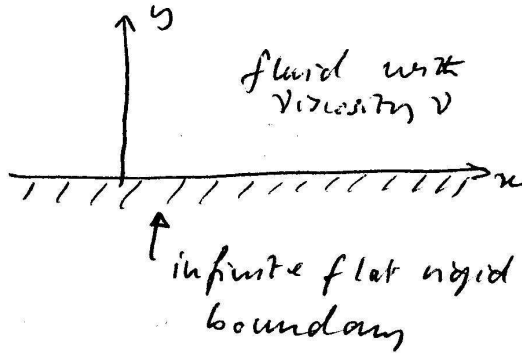 y
fluid with
viscosity ν
x
infinite flat rigid
boundary